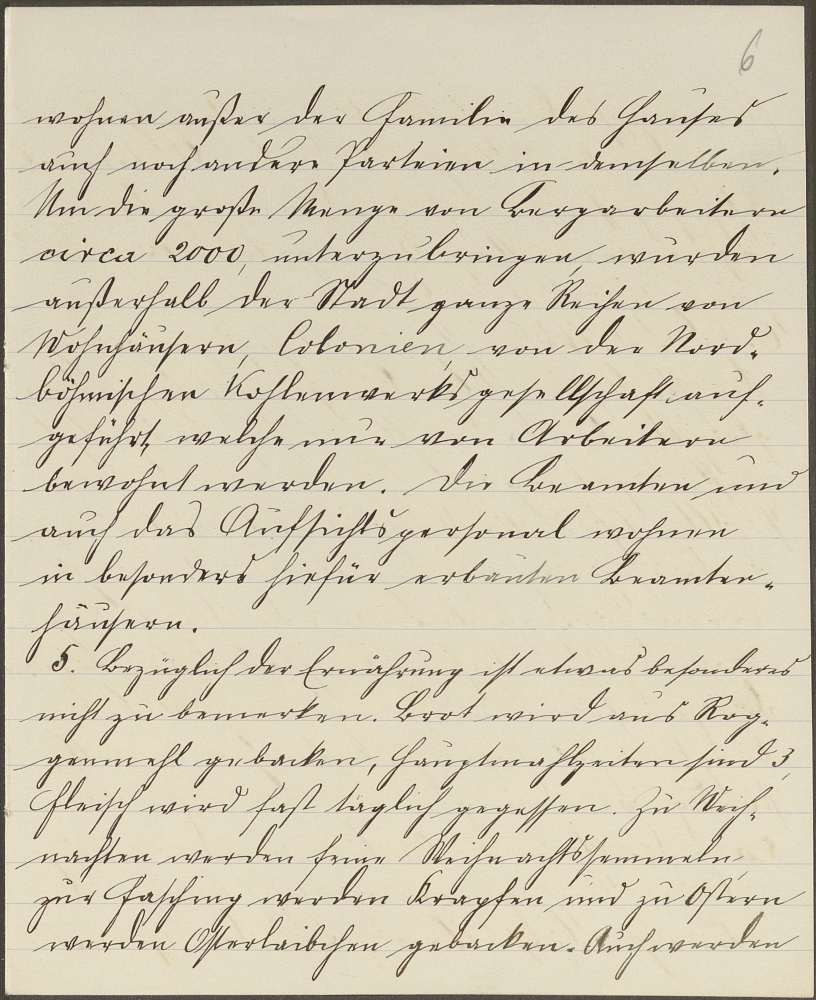 6
wohnen außer der Familie des Hauses
auch noch andere Parteien in demselben.
Um die große Menge von Bergarbeitern
circa 2000, unterzubringen, wurden
außerhalb der Stadt ganze Reihen von
Wohnhäusern, Colonien, von der Nord-
böhmischen Kohlenwerksgesellschaft auf-
geführt, welche nur von Arbeitern
bewohnt werden. Die Beamten und
auch das Aufsichtspersonal wohnen
in besonders hiefür erbauten Beamten-
häusern.
5. Bezüglich der Ernährung ist etwas besonderes
nicht zu bemerken. Brot wird aus Rog-
genmehl gebacken, Hauptmahlzeiten sind 3,
Fleisch wird fast täglich gegessen. Zu Weih-
nachten werden feine Weihnachtssemmeln,
zur Fasching werden Krapfen und zu Ostern
werden Osterlaibchen gebacken. Auch werden